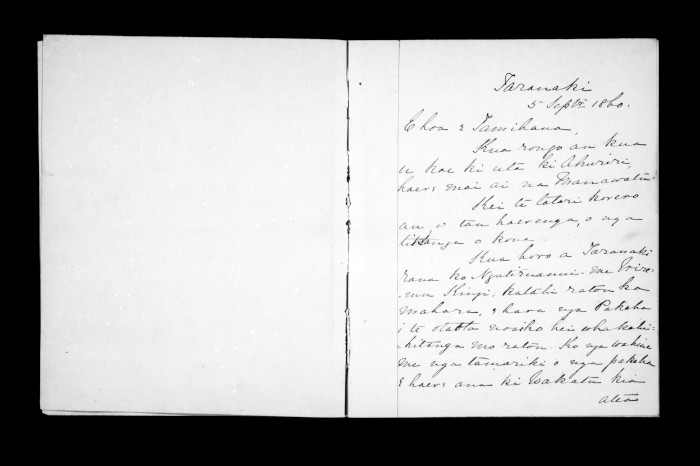 Taranaki
5 Septr 1860.
E hoa e Tamihana,
Kua rongo au kua
u koe ki uta ki Ahuriri,
haere mai ai na Manawatu.
Kei te tatari korero
au, o tau haerenga, o nga
tikanga o kona.
Kua horo a Taranaki
rana ko Ngatiruanui me Wire-
-mu Kingi, katahi ratou ka
mahara, e hara nga Pakeha
i te noaiho hei whakatu-
-hitanga mo ratou. Ko nga wahine
me nga tamariki o nga pakeha
e haere ana ki Wakatu kia
atea